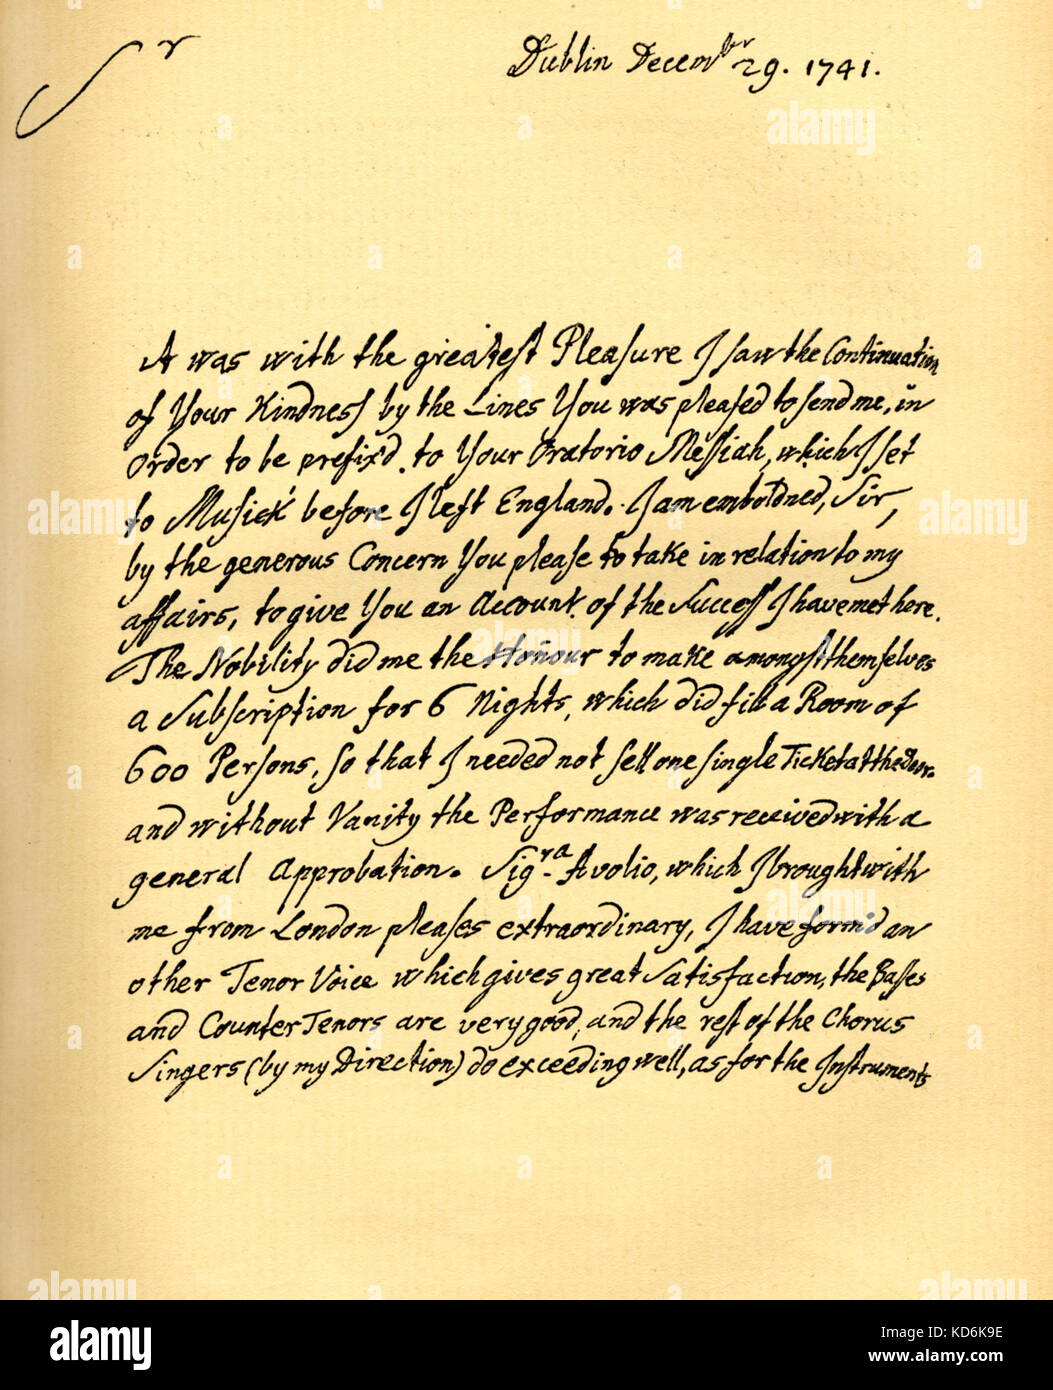 Sr
Dublin Decembr 29. 1741.
It was with the greatest Pleasure I saw the Continuation
of Your Kindness by the Lines You was pleased to send me, in
order to be prefix'd to Your Oratorio Messiah, which I set
to Musick before I left England. I am emboldned, Sir,
by the generous Concern You please to take in relation to my
affairs, to give You an Account of the Success I have met here.
The Nobility did me the Honour to make amongst themselves
a Subscription for 6 Nights, which did fill a Room of
600 Persons, so that I needed not sell one single Ticket at the Door.
and without Vanity the Performance was received with a
general Approbation. Sigra Avolio, which I brought with
me from London pleases extraordinary, I have form'd an
other Tenor Voice which gives great Satisfaction, the Basses
and Counter Tenors are very good, and the rest of the Chorus
Singers (by my Direction) do exceeding well, as for the Instruments
alamy
Image ID: KD6K9E
www.alamy.com